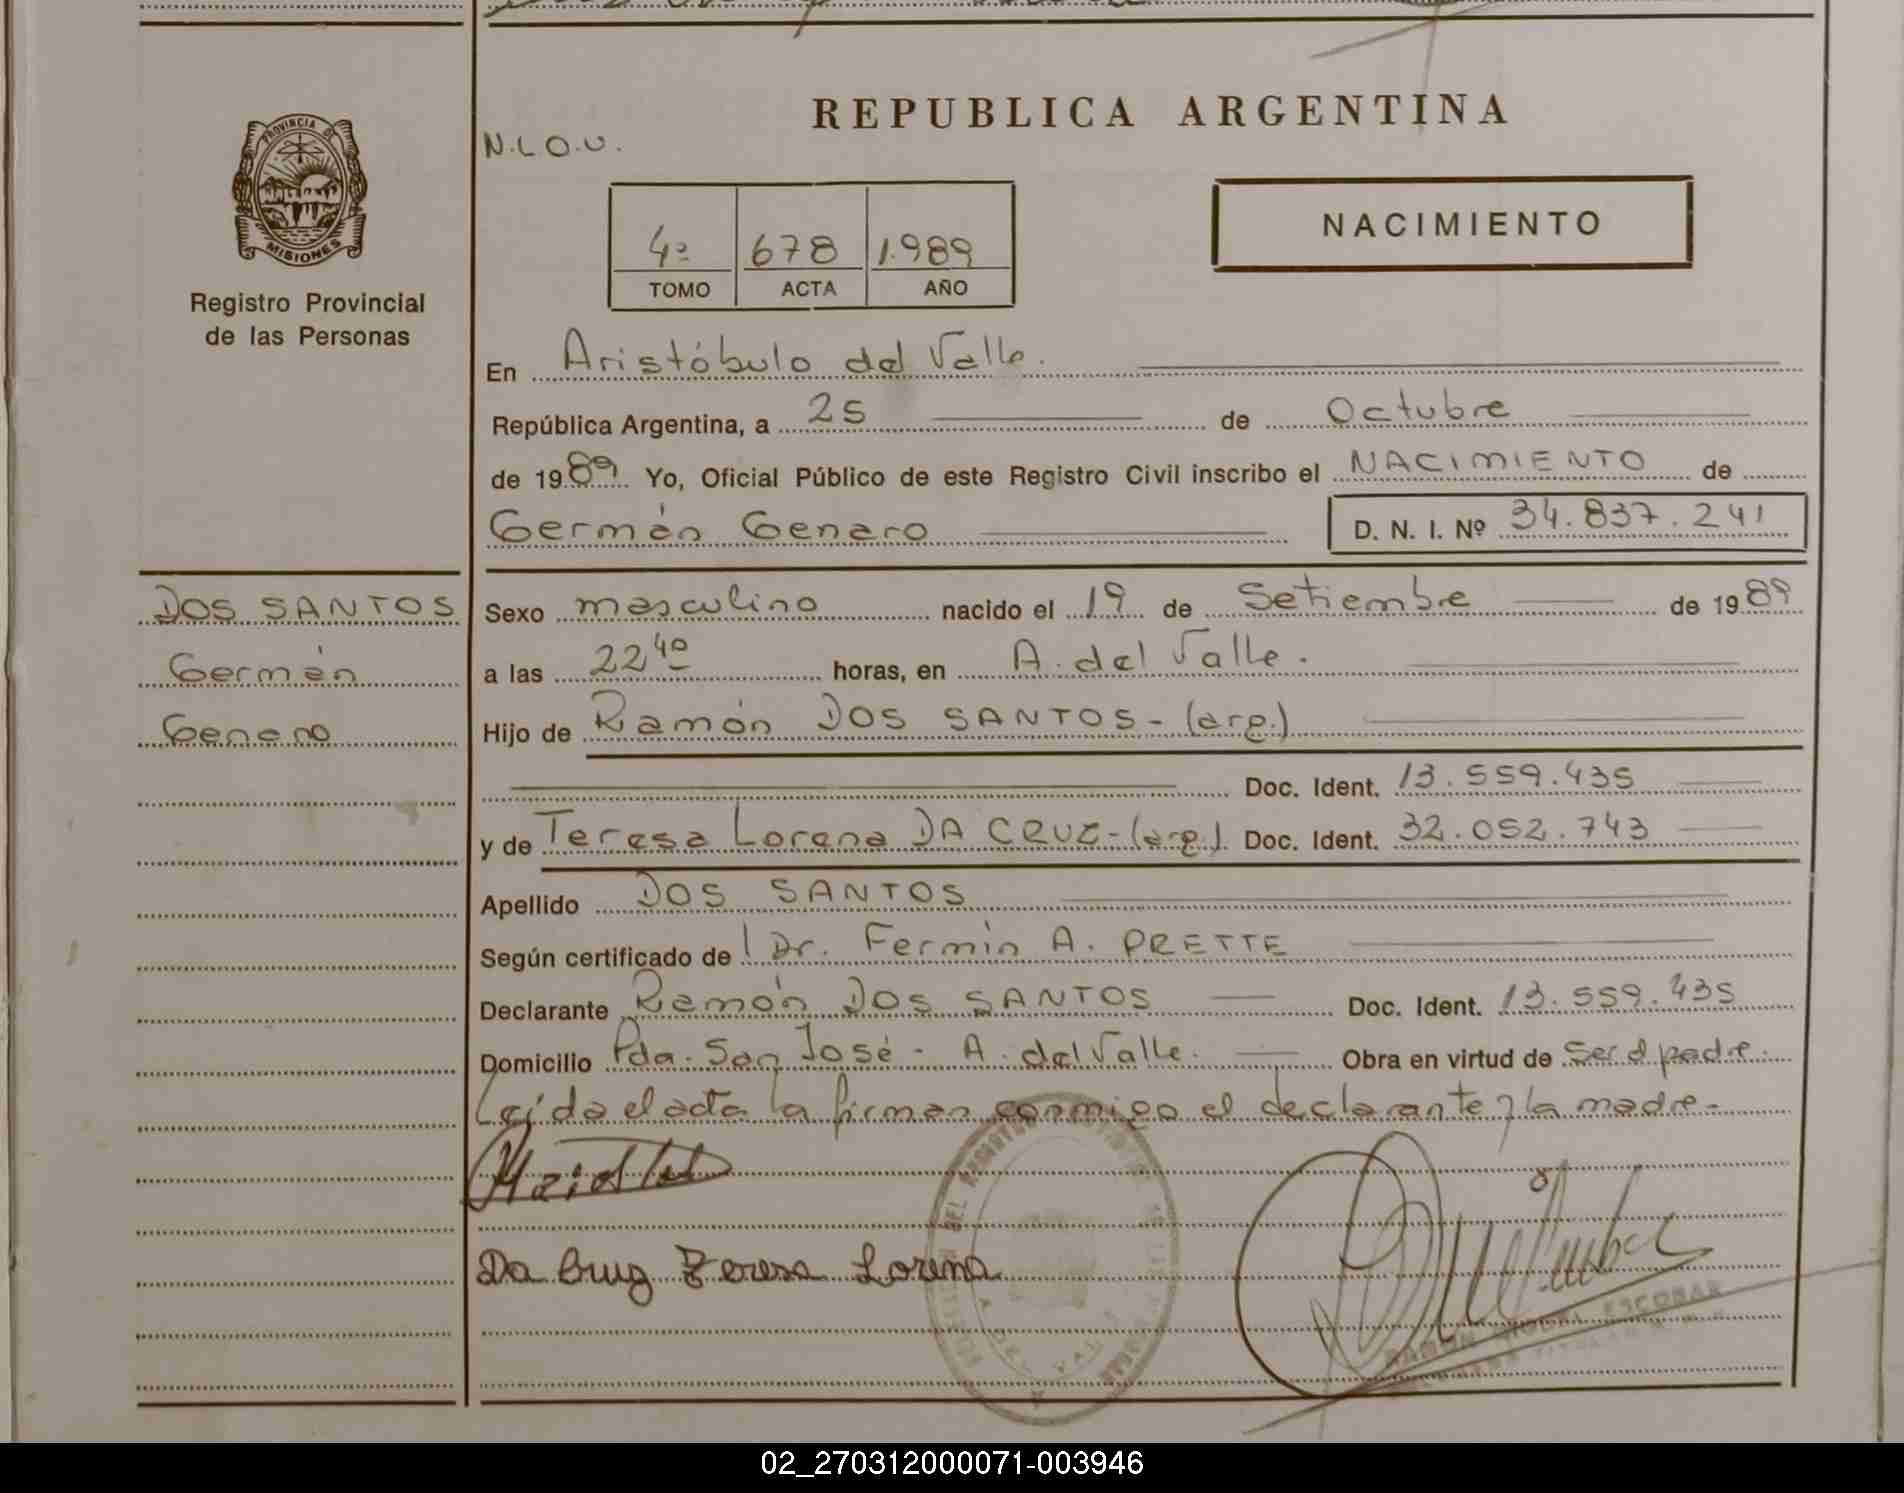 REPUBLICA ARGENTINA
N.L.O.U.
PROVINCIA DE
MISIONES
Registro Provincial
de las Personas
4º 678 1.989
TOMO ACTA AÑO
NACIMIENTO
En Aristóbulo del Valle.
República Argentina, a 25 de Octubre
de 1989 Yo, Oficial Público de este Registro Civil inscribo el NACIMIENTO de
Germán Genaro D. N. I. Nº 34.837.241
DOS SANTOS
Germán
Genaro
Sexo masculino nacido el 19 de Setiembre de 1989
a las 22 40 horas, en A. del Valle.
Hijo de Ramón DOS SANTOS- (arg.)
Doc. Ident. 13.559.435
y de Teresa Lorena DA CRUZ-(arg.) Doc. Ident. 32.052.743
Apellido DOS SANTOS
Según certificado de Dr. Fermín A. PRETTE
Declarante Ramón DOS SANTOS Doc. Ident. 13.559.435
Domicilio Pda. San José - A. del Valle. Obra en virtud de Ser el padre.
Leída el acta la firman conmigo el declarante y la madre.
Da Cruz Teresa Lorena
RAMON MIGUEL ESCOBAR
02_270312000071-003946